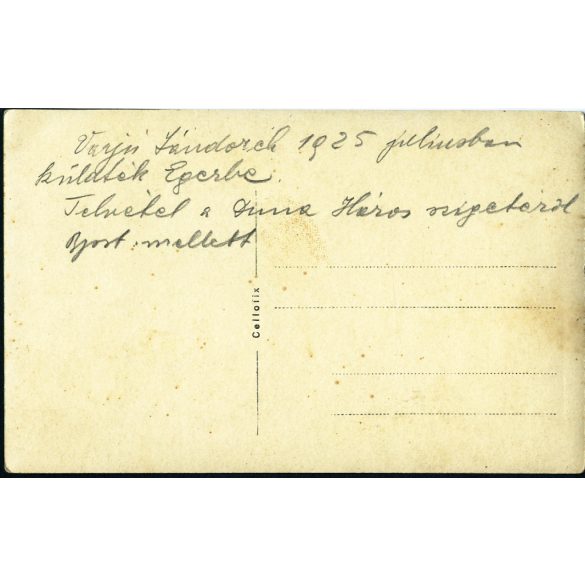 Varjú Sándorék 1925 júliusban
küldték Egerbe.
Felvétel a Duna Háros szigetéről
Bpest mellett
Cellofix